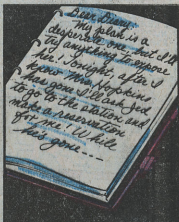 Dear Diary:
My plan is a
desperate one, but I'll
try anything to expose
her! Tonight, after I
know Mrs. Hopkins
has gone I'll ask Jed
to go to the station and
make a reservation
for me! While
he's gone...